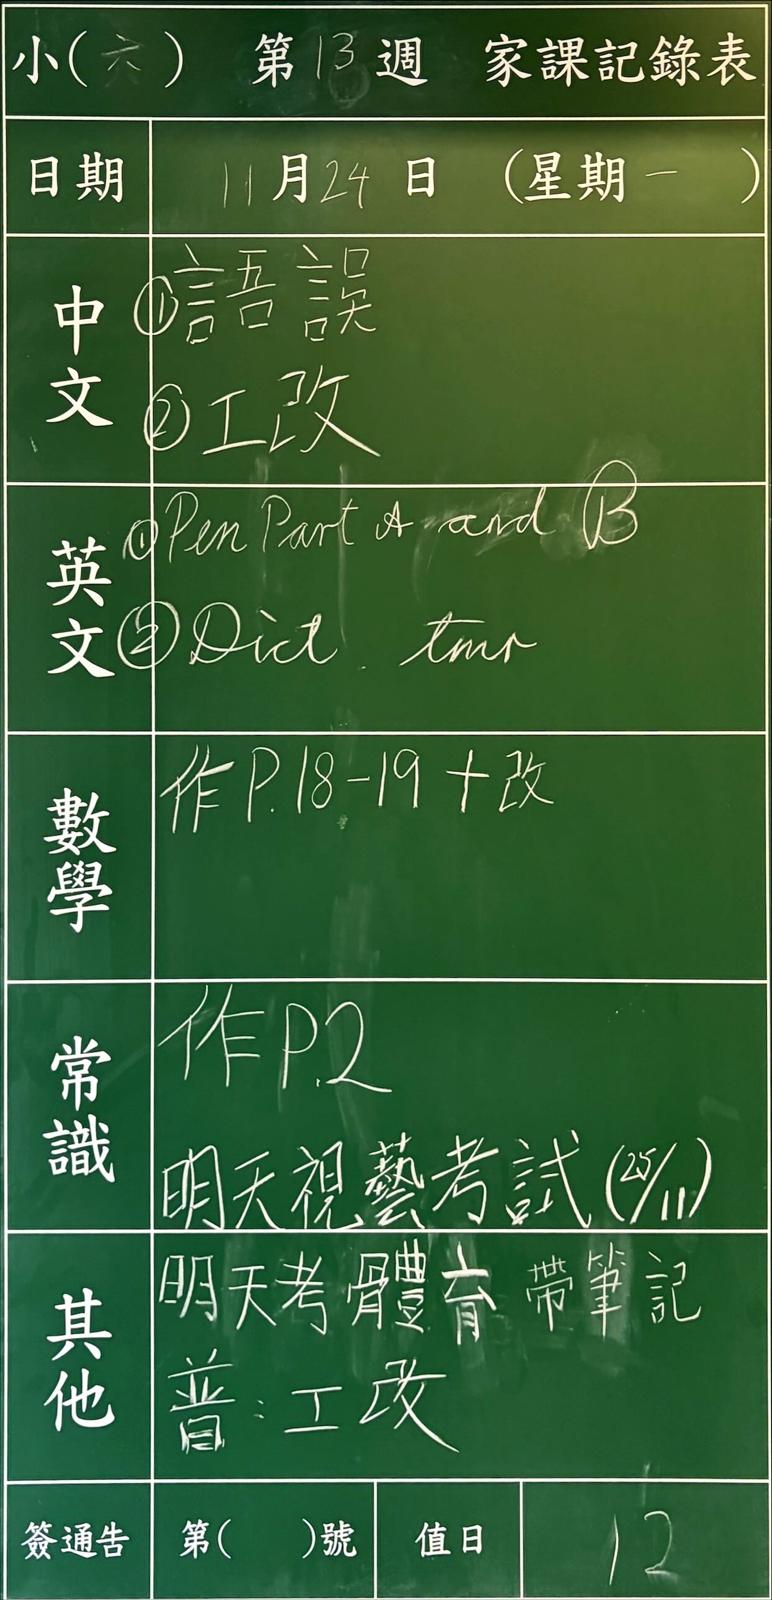 小(六) 第13週 家課記錄表
日期 11月24日 (星期一 )
中文
①語誤
②工改
英文
①Pen Part A and B
②Dict. tmr
數學
作P.18-19+改
常識
作P.2
明天視藝考試(25/11)
其他
明天考體育 帶筆記
普:工改
簽通告 第( )號 值日 12